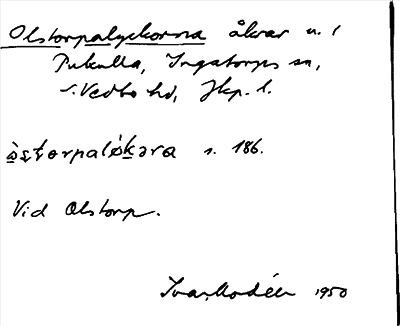 Olstorpalyckorna åkrar u. /
Pukulla, Ingatorps sn,
S. Vedbo hd, Jkp. l.
òsṭorpalǿkara s. 186.
Vid Olstorp.
Ivar Modéer 1950